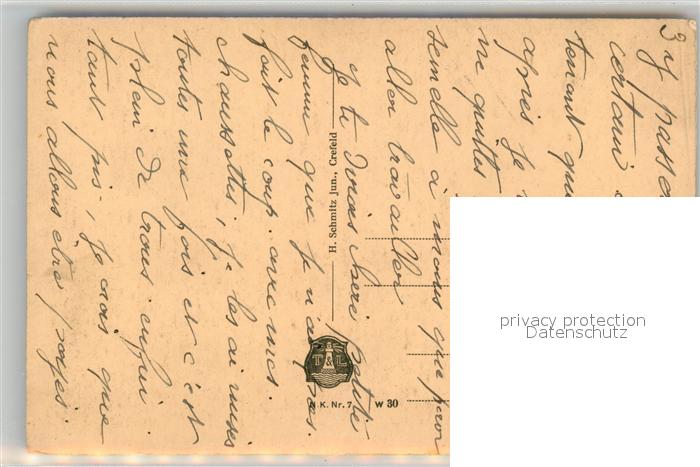 3
y passe
certain
tenant que
apres je
me quitter
semelle a moins que pour
aller travailler
Je te dirais cheri petite
femme que je n'ai pas
fait le coup avec mes
chaussettes, je les ai mises
toutes une fois et c'est
plein de trous enfin
tant pis, je crois que
nous allons être payés.
H. Schmitz jun., Crefeld
T&L
N.K. Nr. 7
W 30
privacy protection
Datenschutz